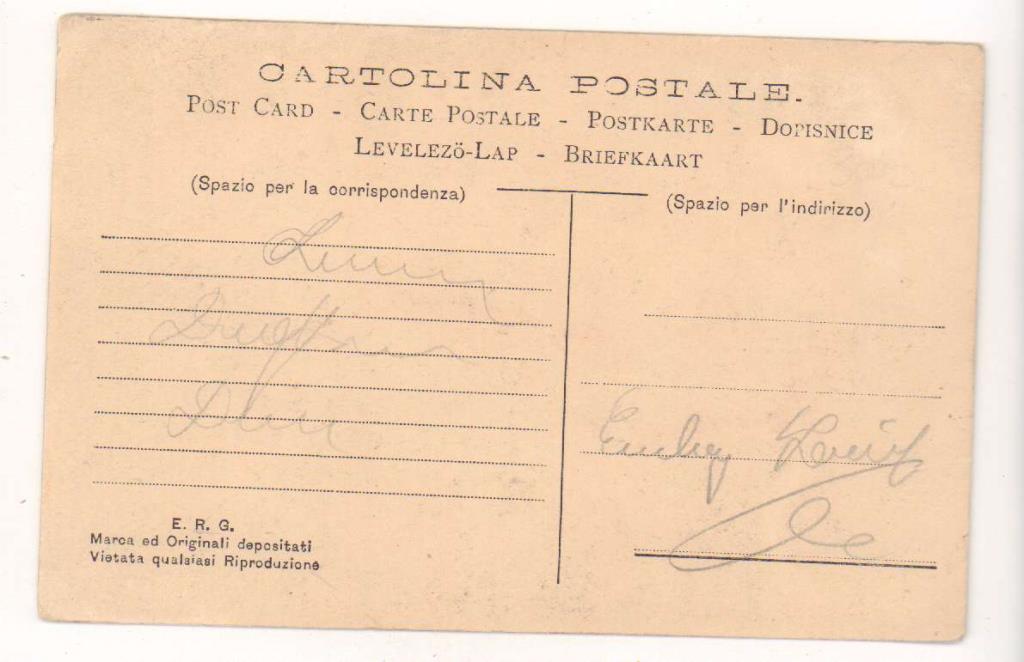 CARTOLINA POSTALE.
POST CARD - CARTE POSTALE - POSTKARTE - DOPISNICE
LEVELEZÖ-LAP - BRIEFKAART
(Spazio per la corrispondenza)
(Spazio per l'indirizzo)
E. R. G.
Marca ed Originali depositati
Vietata qualsiasi Riproduzione